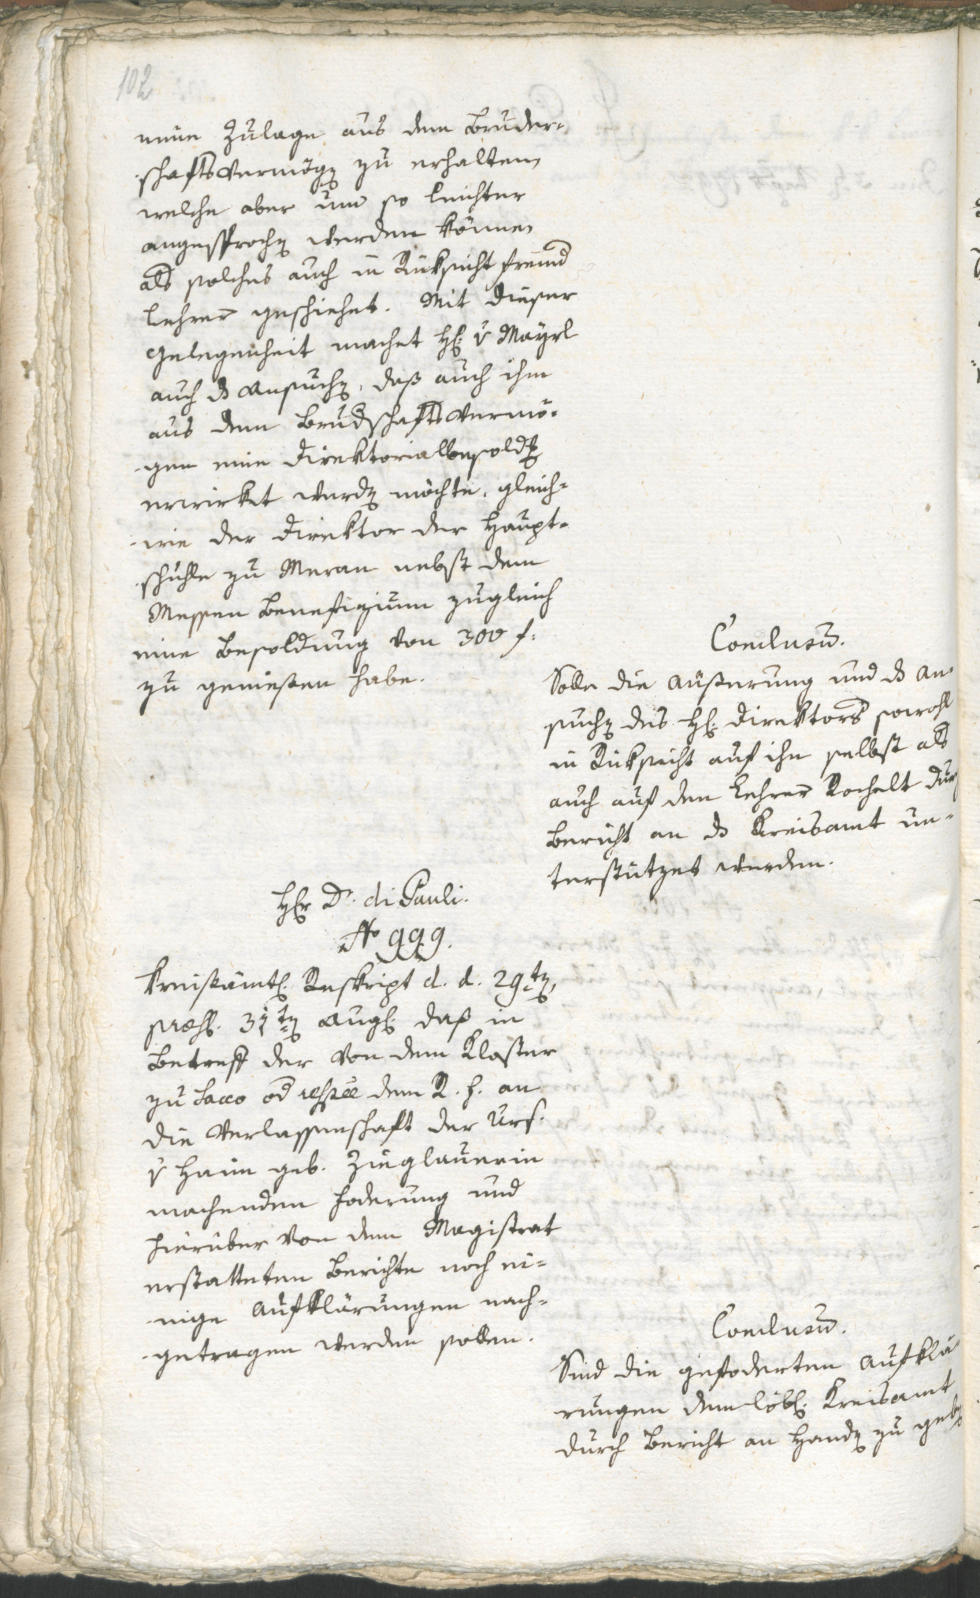 102
neue Zulage aus dem Bruder-
schaftsvermög[en] zu erhalten,
welche aber um so leichter
angesproch[en] werden könne,
als solches auch in Rücksicht fremd[er]
Lehrer geschiehet. Mit dieser
Gelegenheit machet H: v Mayrl
auch d[as] Ansuch[en], daß auch ihm
aus dem Brud[er]schaftsvermö-
gen eine Direktorialbesold[ung]
erwirket werd[en] möchte, gleich-
wie der Direktor der Haupt-
schule zu Meran nebst dem
Messen Benefizium zugleich
eine Besoldung von 300 f:
zu genießen habe.
Conclusu[m].
Solle die Äußerung und d[as] An-
such[en] des H: Direktors sowohl
in Rücksicht auf ihn selbst als
auch auf den Lehrer Rochelt dur[ch]
Bericht an d[as] Kreisamt un-
terstützet werden.
H[er]r D:r di Pauli.
N:o 999.
Kreisämtl: Reskript d. d. 29:t[en],
præs: 31:t[en] Aug: daß in
Betreff der von dem Kloster
zu Sacco od[er] resp[ecti]ve dem R. f. an
die Verlassenschaft der Urs:
v Heim geb. Zieglauerin
machenden Foderung und
hierüber von dem Magistrat
erstatteten Berichte noch ei-
nige Aufklärungen nach-
getragen werden sollen.
Conclusu[m].
Sind die gefoderten Aufklä-
rungen dem löbl: Kreisamt
durch Bericht an Hand[en] zu geb[en]